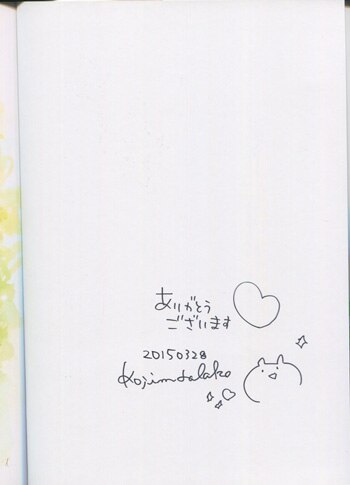 ありがとう
ございます
20150328
Kojimalalako